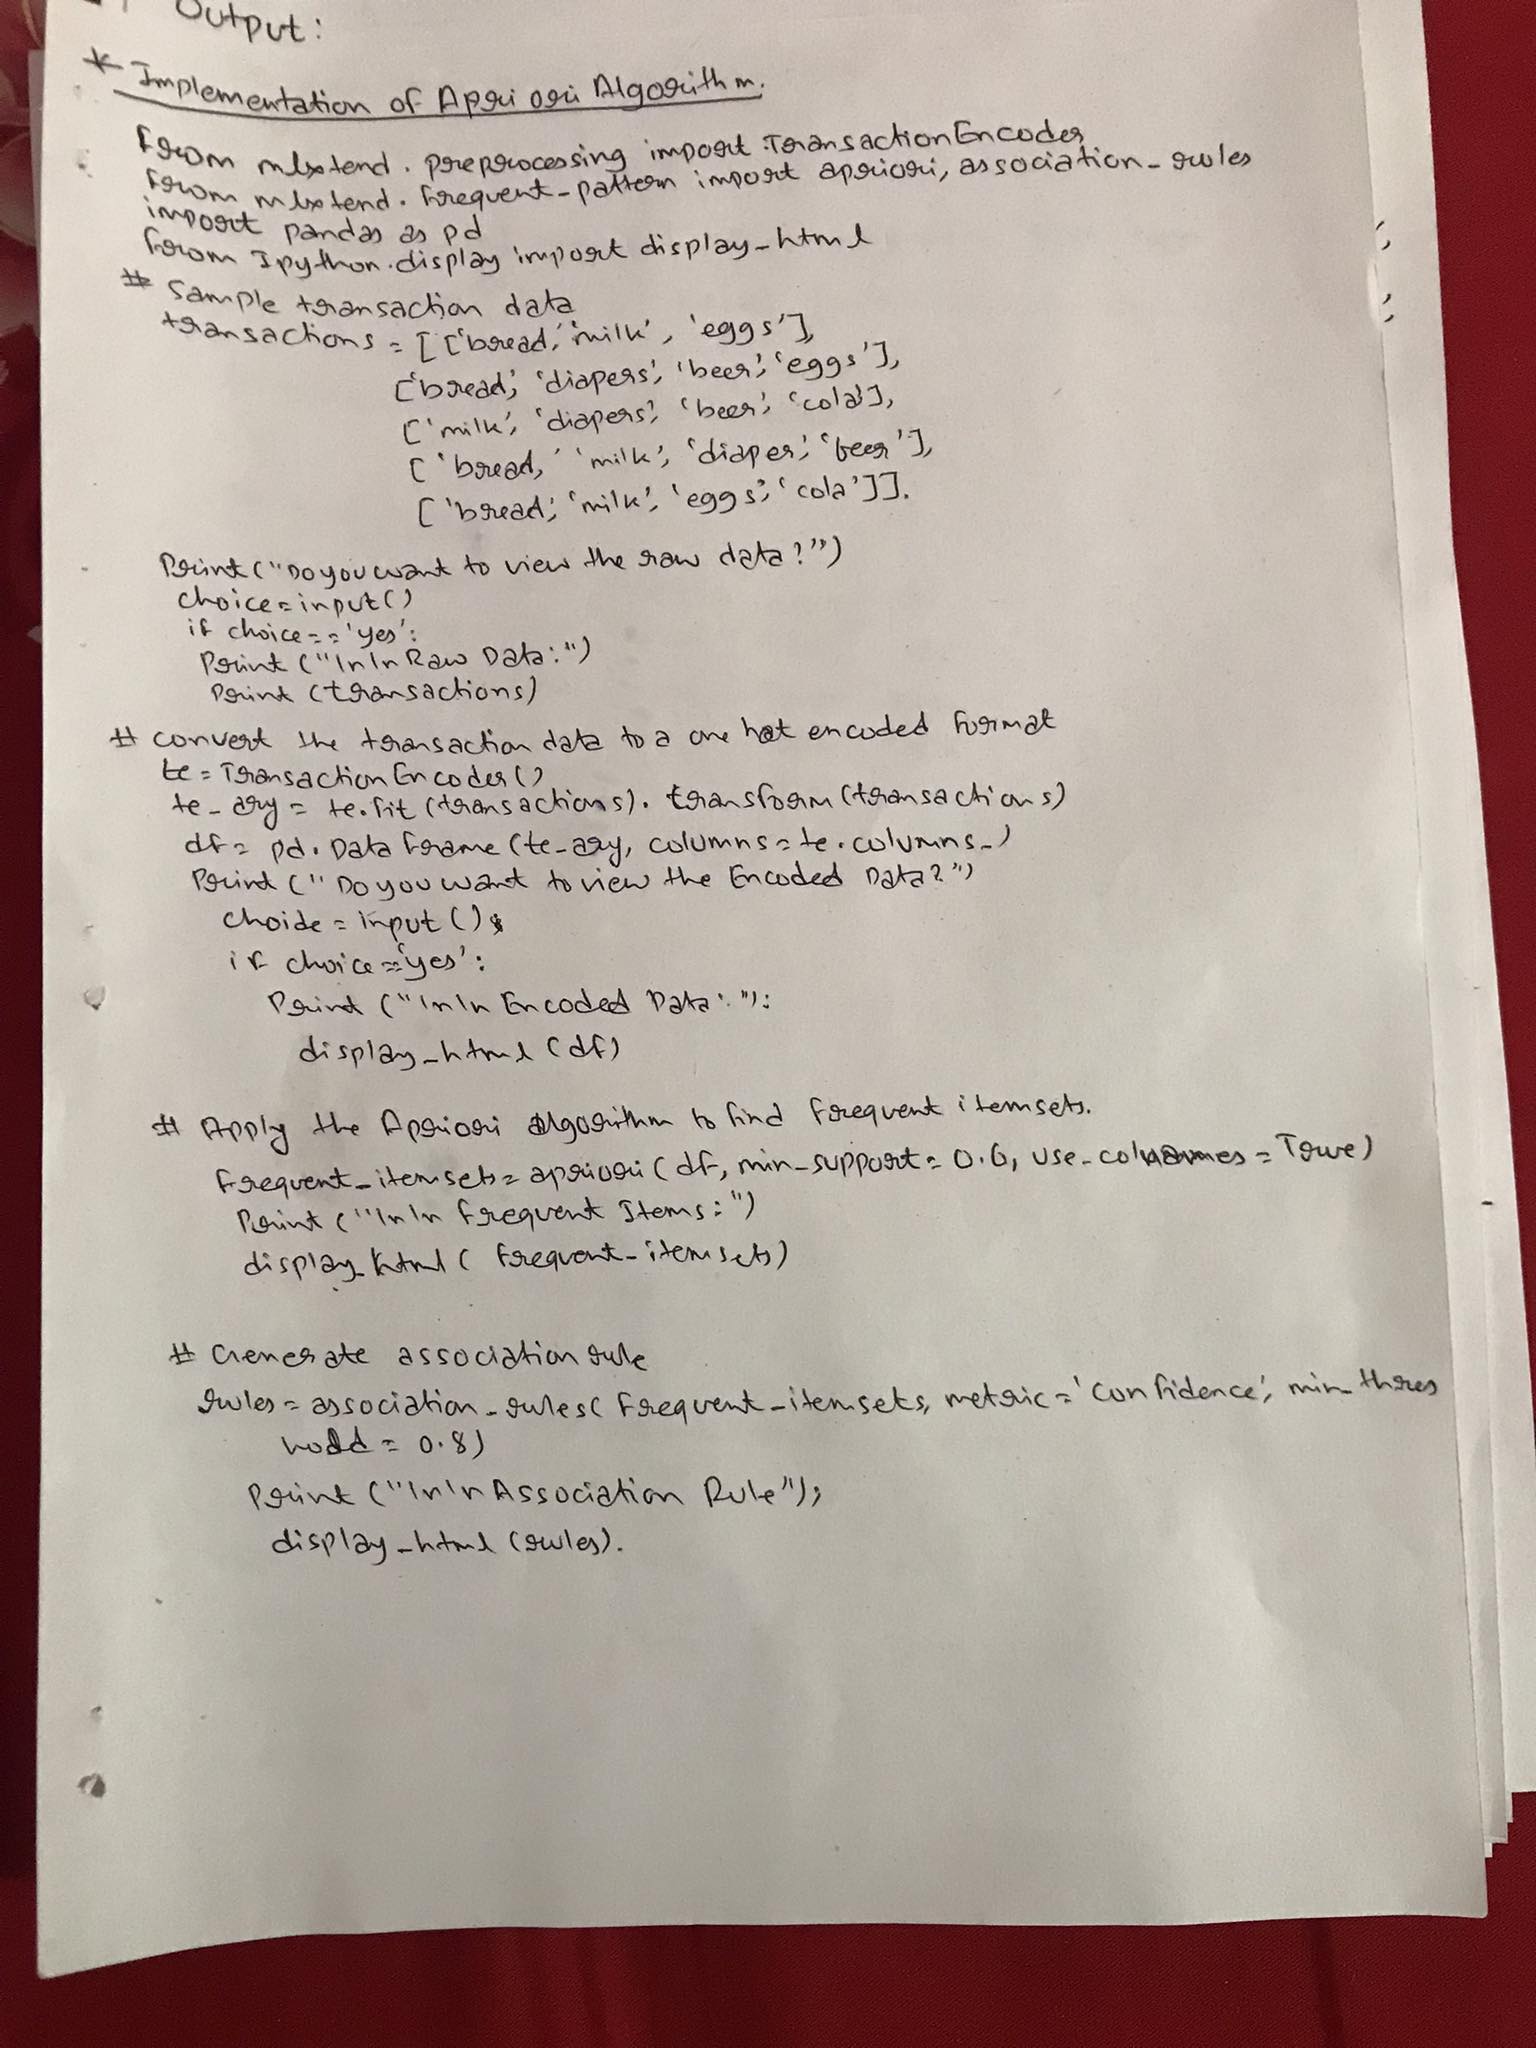 Output:
* Implementation of Apriori Algorithm.
from mlxtend. preprocessing import TransactionEncoder
from mlxtend. frequent_pattern import apriori, association_rules
import pandas as pd
from Ipython.display import display_html
# Sample transaction data
transactions = [['bread,'milk', 'eggs'],
['bread', 'diapers', 'beer', 'eggs'],
['milk', 'diapers', 'beer', 'cola'],
['bread,' 'milk', 'diaper', 'beer'],
['bread', 'milk', 'eggs', 'cola']].
Print ("Do you want to view the raw data?")
choice=input()
if choice=='yes':
Print ("\n\n Raw Data:")
Print (transactions)
# convert the transaction data to a one hot encoded format
te = TransactionEncoder()
te_ary = te.fit (transactions). transform (transactions)
df = pd. DataFrame (te_ary, columns = te. columns_)
Print (" Do you want to view the Encoded Data?")
choide = input ()
if choice =='yes':
Print ("\n\n Encoded Data:"):
display_html (df)
# Apply the Apriori algorithm to find frequent itemsets.
frequent_itemsets = apriori (df, min_support = 0.6, use_colnames = True)
Print ("\n\n frequent Items:")
display_html ( frequent_itemsets)
# Generate association rule
rules = association_rules( frequent_itemsets, metric = 'confidence', min_thres
hold = 0.8)
Print ("\n\n Association Rule");
display_html (rules).